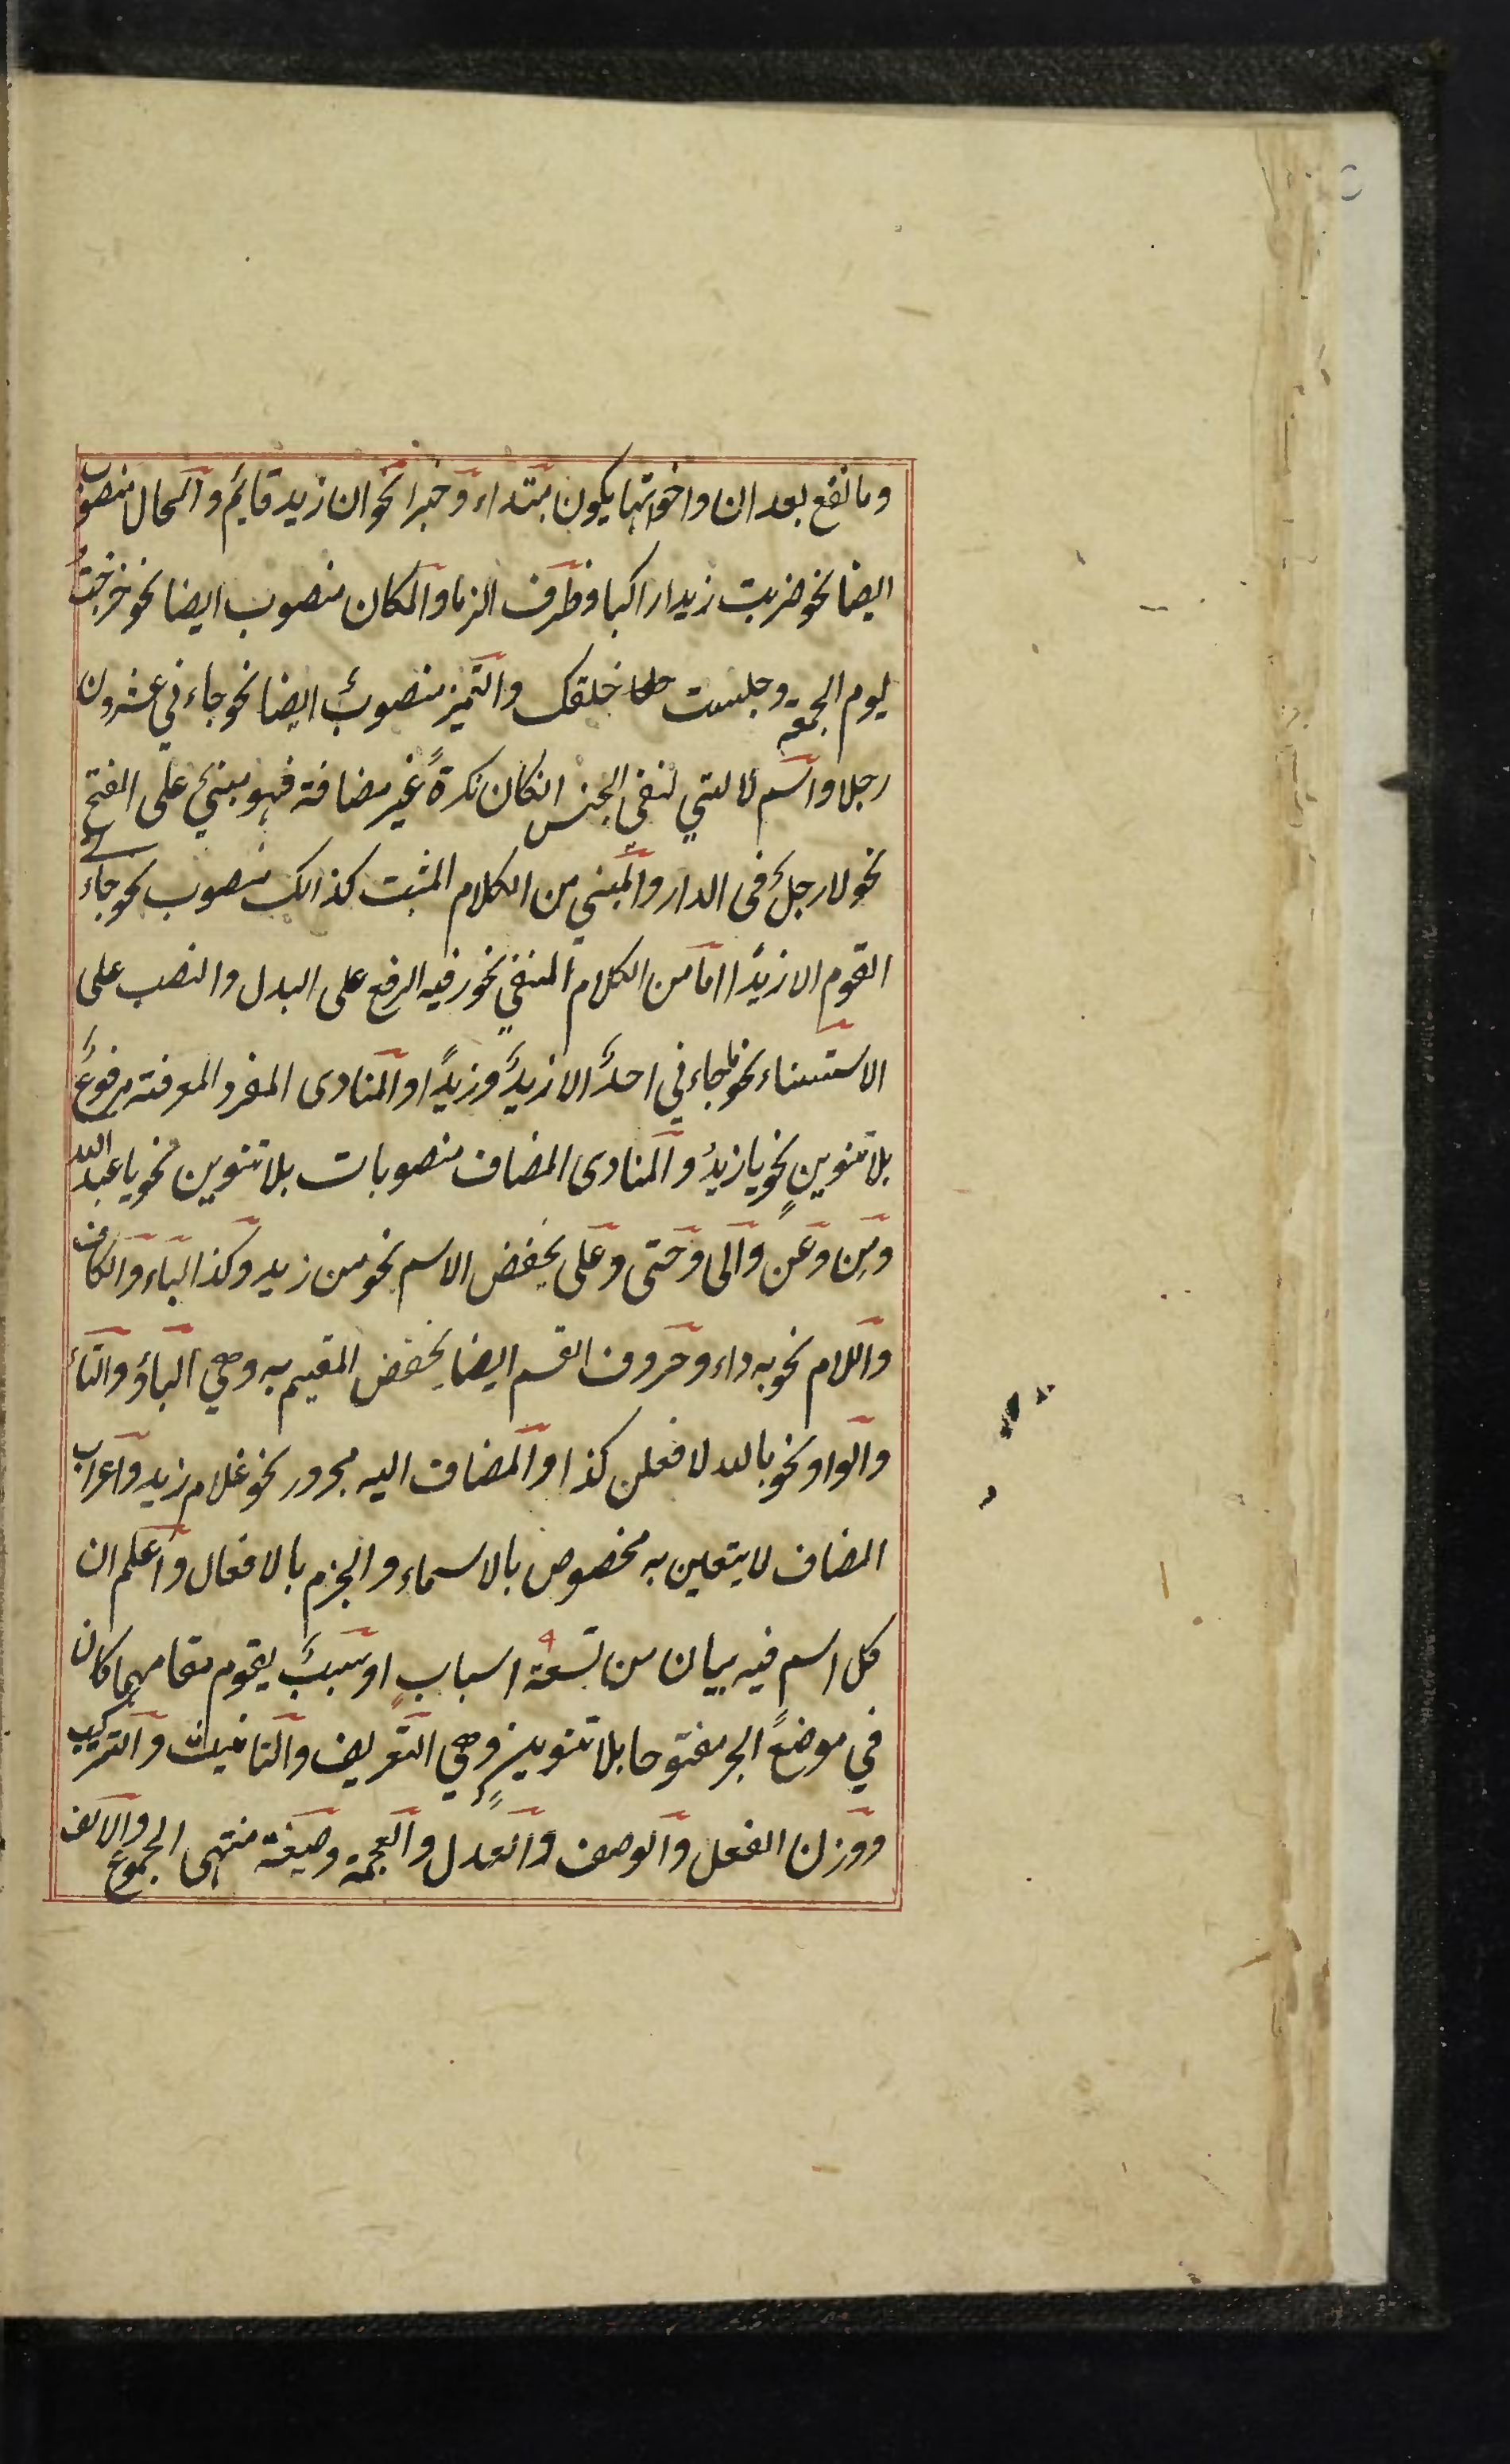 وما تقع بعد ان واخواتها يكون مبتداء وخبرا نحو ان زيد قايم والحال منصوب
ايضا نحو ضربت زيدا راكبا وظرف الزما والمكان منصوب ايضا نحو خرجتُ
يوم الجمعة وجلست خلفك والتميز منصوبٌ ايضا نحو جاءني عشرون
رجلا واسم لا لتي لنفي الجنس انكان نكرةً غير مضافة فهو مبني على الفتح
نحو لا رجل في الدار والمبني من الكلام المثبت كذالك منصوب نحو جاء
القوم الا زيدًا اما من الكلام المنفي نحور فيه الرفع على البدل والنصب على
الاستثناء نحو ما جاءني احدٌ الا زيدٌ وزيدًا والمنادى المفرد المعرفة مرفوعٌ
بلا تنوينٍ نحو يا زيدُ والمنادى المضاف منصوبات بلا تنوين نحو يا عبد الله
ومِن وعَن والى وحتى وعلى يخفض الاسم نحو من زيد وكذا الباء والكاف
واللام نحو به داء وحروف القسم ايضا يخفض المقسم به وهي الباؤ والتاء
والواو نحو بالله لافعلن كذا والمضاف اليه مجرور نحو غلام زيد واعراب
المضاف لا يتعين به مخصوص بالاسماء والجزم بالافعال واعلم ان
كل اسم فيه ببان من تسعة ٩ اسبابٍ او سببٌ يقوم مقامهما كان
في موضع الجر مفتوحا بلا تنوينٍ وهي التعريف والتانيث والتركيب
ووزن الفعل والوصف والعدل والعجمة وصيغة منتهى الجموع والالف